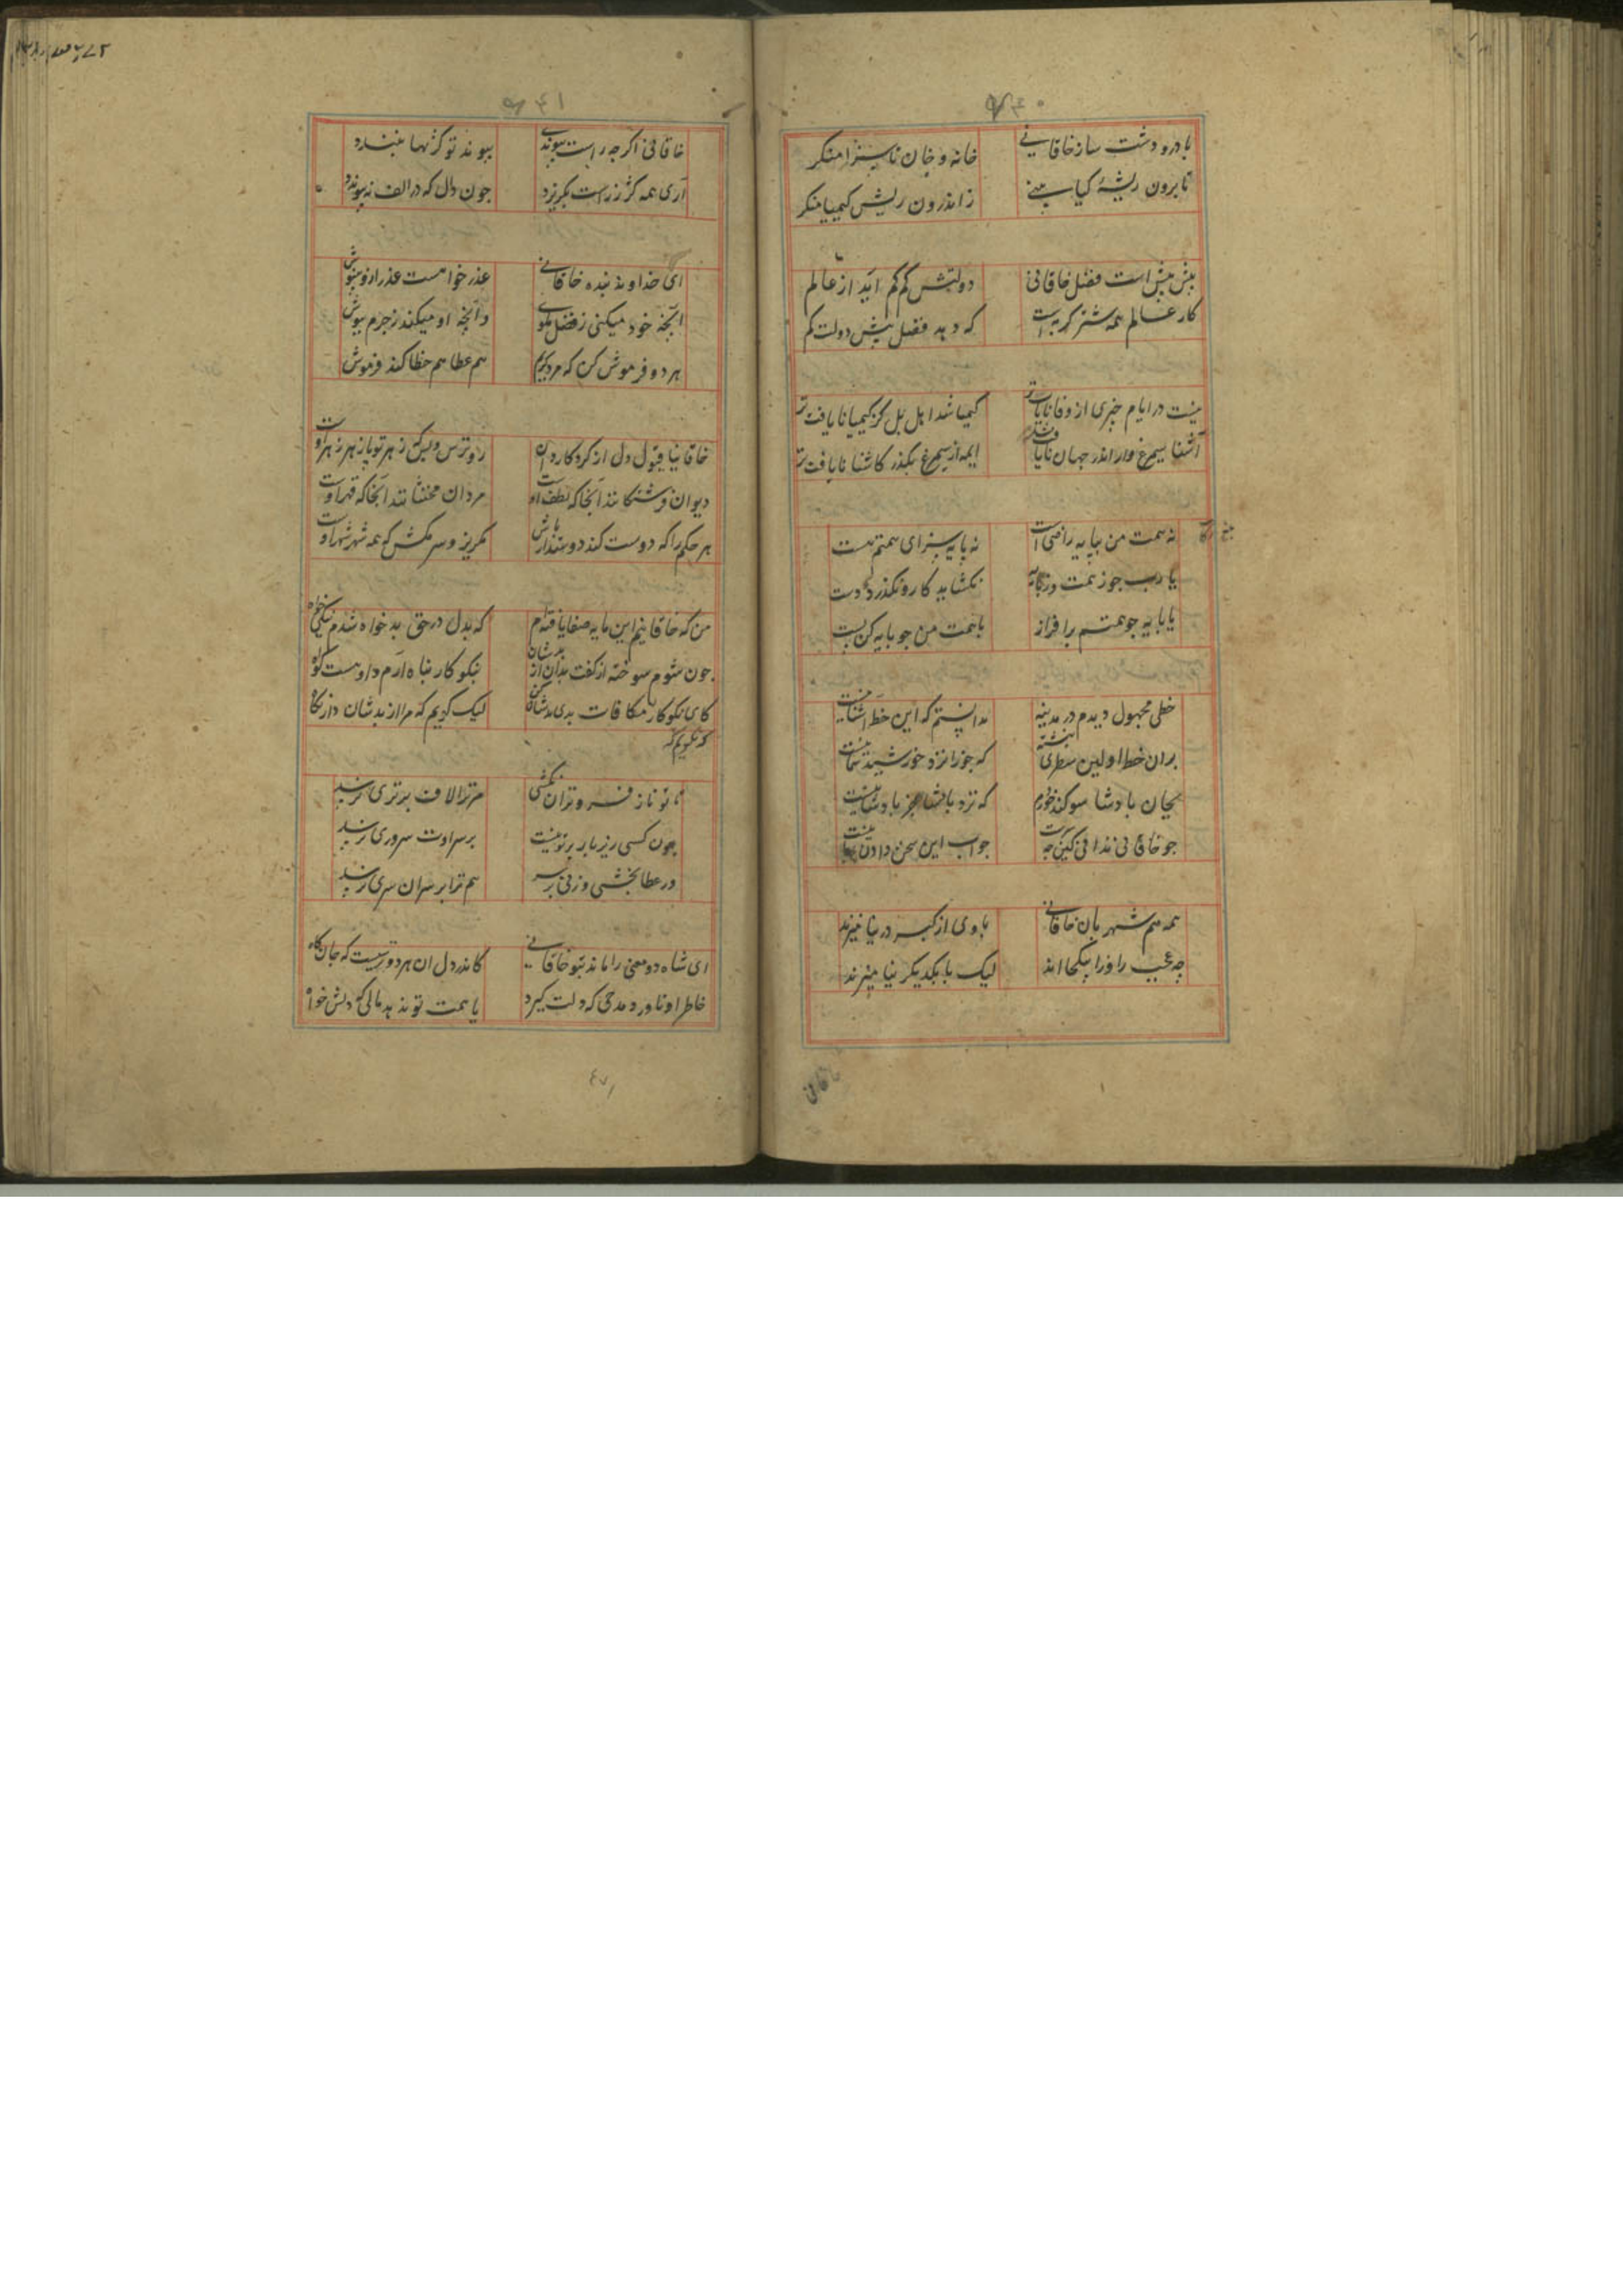 با درد و دشت ساز خاقانی خانه و خان ناسزا منکر
تا برون ریشهٔ کیا بینی ز اندرون ریش کیمیا منکر
بیش بیش است فضل خاقانی دولتش کم کم آید از عالم
کار عالم همه شتر کربه است که دهد فضل بیش دولت کم
نیست در ایام چیزی از وفا نایافت تر کیمیا شد اهل بل کز کیمیا نایافت تر
آشنا سیمرغ وار اندر جهان نایافت شد ایمه از سیمرغ بکذر کاشنا نایافت تر
نه همت من بپایه راضی است نه پایه سزای همتم هست
یا رب جو ز همت و ز پایه نکشاید کار و نکذرد دست
یا پایه جو همتم برافراز یا همت من جو پایه کن پست
خطی مجهول دیدم در مدینه بدانستم که این خط آشنا نیست
بران خط اولین سطری نبشته که جوزا نزد خورشید سما نیست
بجان پادشا سوکند خوردم که نزد پادشا جز پادشا نیست
جو خاقانی ندانی کین جه سرت جواب این سخن دادن نیست
همه هم شهریان خاقانی با وی از کبر در نیامیزند
جه عجب را ورا بیکجا اند لیک با یکدیکر نیامیزند
خاقانی اکر جه راست پیوندی پیوند تو کژنهاد نپسندد
آری همه کژ ز راست بکریزد جون دال که در الف نپیوندد
ای خداوند بنده خاقانی عذر خواهست عذر ازو بنیوش
آنچه خود میکنی ز فضل مکوی و آنچه او میکند ز جرم بپوش
هر دو فرموش کن که مرد کریم هم عطا هم خطا کند فرموش
خاقانیا قبول دل از کردکار دان رو ترس ولیکن ز هر تو پازهر زهر اوست
دیوان فرشتکانند آنجا که لطف اوست مردان مخنثانند آنجا که قهر اوست
هر حکم را که دوست کند دوستدار باش مکریز و سر مکش که همه شهر شهر اوست
من که خاقانیم این مایه صفا یافته‌ام که بدل در حق بدخواه شدم نیکی خواه
جون شوم سوخته از کفت بدان از بدشان نیکو کار پناه آرم و او هست کواه
کای نکوکار مکافات بدی بدشان کن لیک کویم که مرا از بدشان دار نکاه
که نکویم که
تا تو ناز فروتران نکشی مر ترا لاف برتری نرسد
جون کسی زیر بار بر تو نیست بر سر اوت سروری نرسد
در عطا بخشی و زنی بر سر هم ترا بر سران سری نرسد
ای شاه دو معنی را ماند بتو خاقانی کاندر دل ان هر دو ترسیست که جان کاهد
خاطر او ناورد مدحی که دلت کیرد یا همت تو ندهد مالی که دلش خواهد